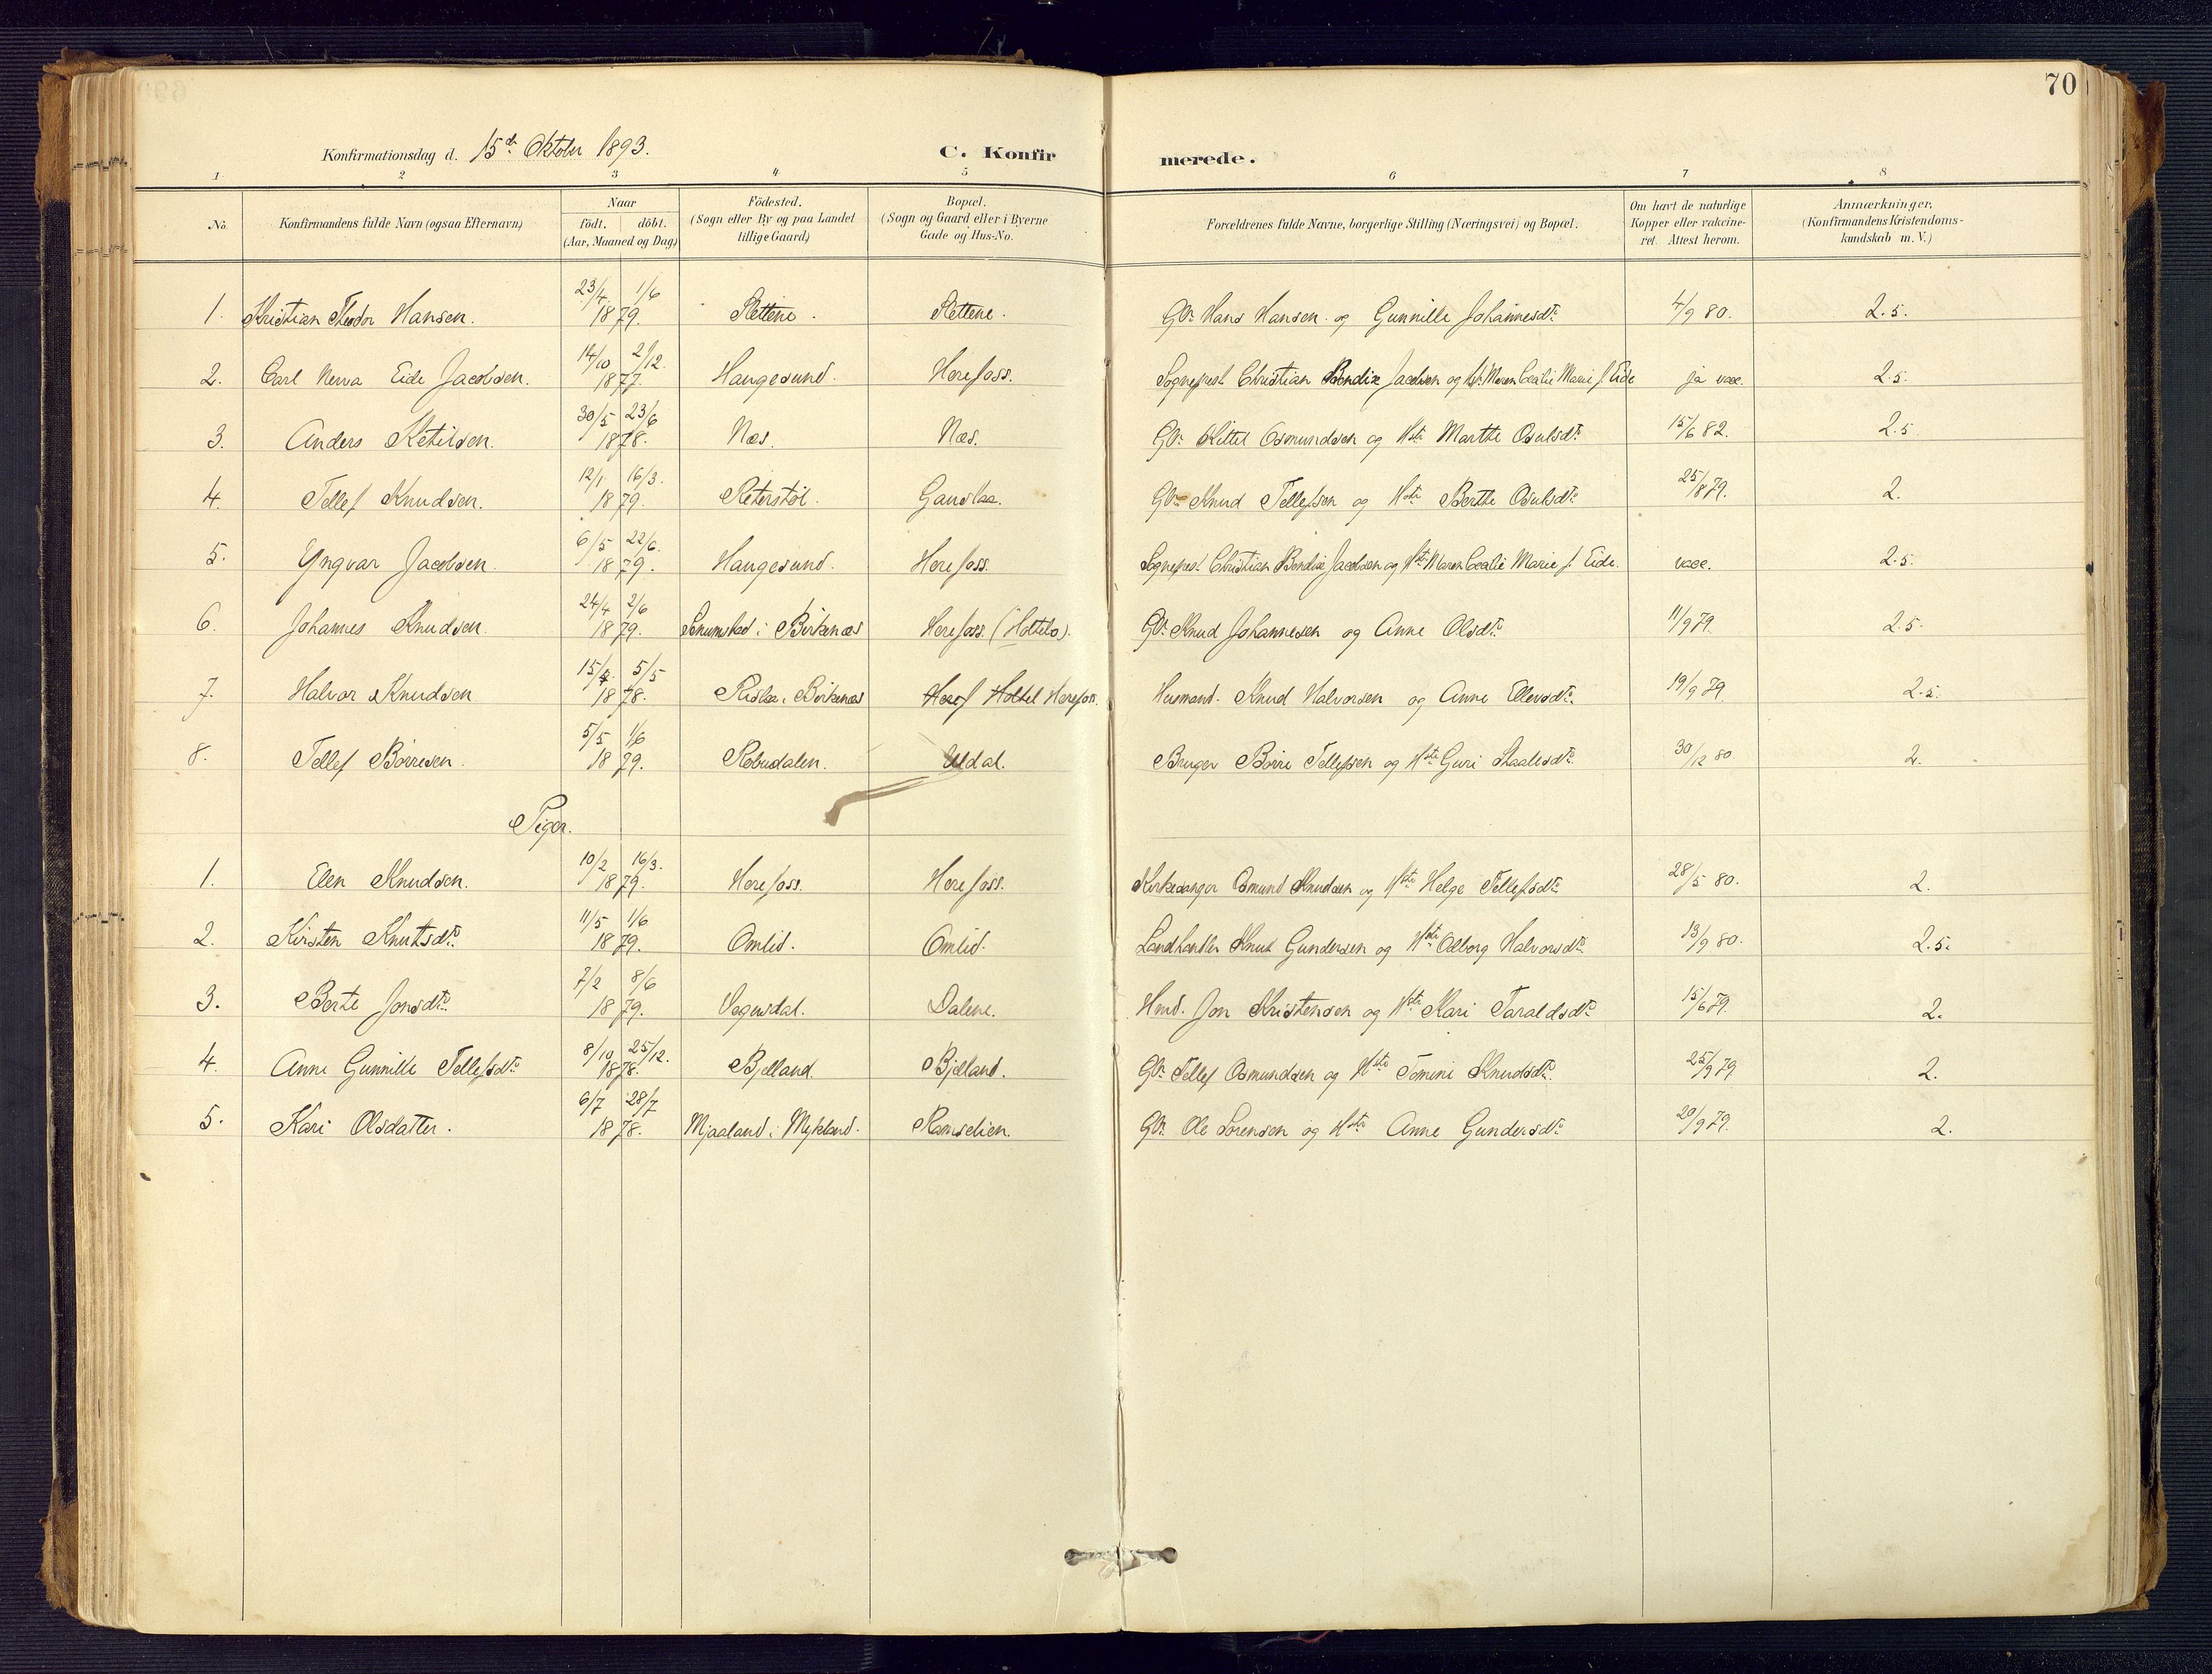 70
Konfirmationsdag d. 15de Oktober 1893. C. Konfirmerede.
1 2 3 4 5 6 7 8
No. Konfirmandens fulde Navn (ogsaa Efternavn) Naar födt. döbt. (Aar, Maaned og Dag) Födested. (Sogn eller By og paa Landet tillige Gaard) Bopæl. (Sogn og Gaard eller i Byerne Gade og Hus-No. Forældrenes fulde Navne, borgerlige Stilling (Næringsvei) og Bopæl. Om havt de naturlige Kopper eller vakcineret. Attest herom. Anmærkninger. (Konfirmandens Kristendomskundskab m. V.)
1. Kristian Theodor Hansen. 23/4 1/6 1879. Rettene. Rettene. Gbr. Hans Hansen og Gunnille Johannesdtr. 4/9 80. 2.5.
2. Carl Nerva Eide Jacobsen. 14/10 2/12. 1877. Haugesund. Herefoss. Sogneprest Christian Bendix Jacobsen og Hst. Maren Cecilie Marie f. Eide ja vacc. 2.5.
3. Anders Ketilsen. 30/5 23/6 1878. Næs. Næs. Gbr. Kittel Osmundsen og Hstr. Marthe Osulsdtr. 15/6 82. 2.5.
4. Tellef Knudsen. 12/1 16/3. 1879. Retterstöl. Gauslaa. Gbr. Knud Tellefsen og Hstr. Berthe Osulsdtr. 25/8 79. 2.
5. Yngvar Jacobsen. 6/5 22/6. 1879. Haugesund. Herefoss. Sogneprest Christian Bendix Jacobsen og Hstr. Maren Cecilie Marie f. Eide. vacc. 2.5.
6. Johannes Knudsen. 24/4 2/6 1879. Senumstad i Birkenæs Herefoss. Gbr. Knud Johannesen og Anne Olsdtr. 11/9 79. 2.5.
7. Halvor Knudsen 15/4 5/5 1878. i Birkenæs Heref Holtet Herefoss. Husmand. Knud Halvorsen og Anne Ellevsdtr. 19/9 79. 2.5.
8. Tellef Börresen. 5/5 1/6 1879. Robudalen. Uldal. Bruger Börre Tellefsen og Hstr. Guri Staalesdtr. 30/12 80. 2.
Piger.
1. Elen Knudsen. 10/2 16/3. 1879. Herefoss. Herefoss. Kirkesanger Osmund Knudsen og Hstr. Helge Tellefsdtr. 28/5 80. 2.
2. Kirsten Knutsdtr. 11/5 1/6 1879. Omlid. Omlid. Landhandler Knut Gundersen og Hstr. Olborg Halvorsdtr. 13/9 80. 2.5.
3. Berte Jonsdtr. 7/2 8/6 1879. Vegusdal. Dalene. Hmd. Jon Kristensen og Hstr. Kari Taraldsdtr. 15/6 79. 2.
4. Anne Gunnille Tellefsdtr. 8/10 25/12. 1878. Bjelland. Bjelland. Gbr. Tellef Osmundsen og Hstr. Tomine Knudsdtr. 25/9 79 2.
5. Kari Olsdatter. 6/7 28/7 1878. Mjaaland i Mykland. Ramselien. Gbr. Ole Sörensen og Hstr. Anne Gundersdtr. 20/9 79. 2.